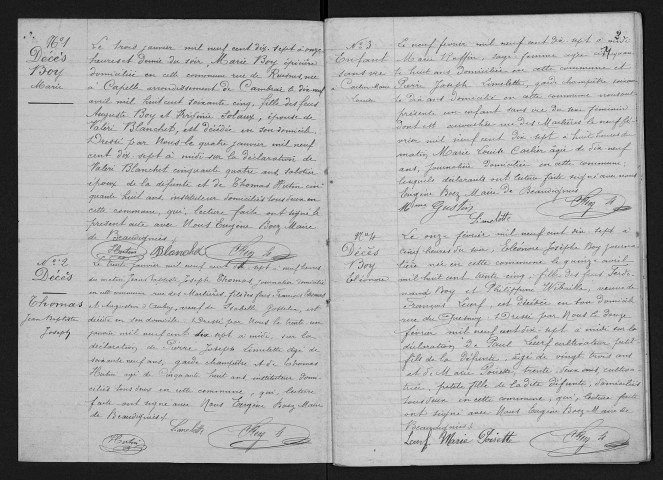 N°1
Décès
Boy
Marie
Le trois janvier mil neuf cent dix sept à onze
heures et demie du soir, Marie Boy épicière
domiciliée en cette commune rue de
à Capelle arrondissement de Cambrai le dix neuf
avril mil huit cent soixante cinq, fille des feus
Auguste Boy et épouse de
Valéri Blanchot, est décédée en son domicile
Dressé par Nous le quatre janvier mil neuf
cent dix sept à midi sur la déclaration de
Valéri Blanchot cinquante quatre ans,
époux de la défunte et de Thomas Hutin cin
quante huit ans, instituteur domiciliés tous deux en
cette commune, qui, lecture faite ont signé le
présent acte avec Nous Eugène Boez Maire
de Beaudignies
N°2
Décès
Thomas
Jean Baptiste
Joseph
Le trente janvier mil neuf cent dix sept à neuf heures
du matin Jean Baptiste Joseph Thomas, journalier domicilié en
rue des Martières, fils des feus François Thomas
et Augustine veuf de Isabelle est
décédé en son domicile Dressé par Nous le trente un
janvier mil neuf cent dix sept à midi, sur la
déclaration de Pierre Joseph Limelette âgé de
soixante neuf ans, garde champêtre et de Thomas
Hutin âgé de cinquante huit ans instituteur domi
ciliés tous deux en cette commune, qui, lecture
faite ont signé avec Nous Eugène Boez Maire
de Beaudignies
Limelette
Hutin
3
N°3
Enfant
sans vie
Le neuf février mil neuf cent dix sept à midi
Marie sage femme agée
ans domiciliée en cette commune et
Pierre Joseph Limelette, garde champêtre soixante
dix ans domicilié en cette commune nous ont
présenté un enfant sans vie du sexe féminin
dont est accouchée rue des Martières le neuf fé
vrier mil neuf cent dix sept à huit heures du
matin, Marie Louise Carlier âgée de dix neuf
ans, journalière domiciliée en cette commune,
lesquels déclarants ont lecture faite signé avec nous
Eugène Boez Maire de Beaudignies
Limelette
N°4
Décès
Boy
Eléonore
Le onze février mil neuf cent dix sept à
cinq heures du soir, Eléonore Joseph Boy journa
lière née en cette commune le quinze avril
mil huit cent trente cinq, fille des feus Ferdi
nand Boy et Philippine veuve de
François Leurf, est décédée en son domicile
rue du Quesnoy Dressé par Nous le douze
février mil neuf cent dix sept à midi sur la
déclaration de Paul Leurf cultivateur, petit
fils de la défunte, âgé de vingt trois ans
et de Marie trente deux ans, cultiva
trice, petite fille de la dite défunte, domiciliés
tous deux en cette commune, qui, lecture faite
ont signé avec Nous Eugène Boez Maire de
Beaudignies
Leurf Marie